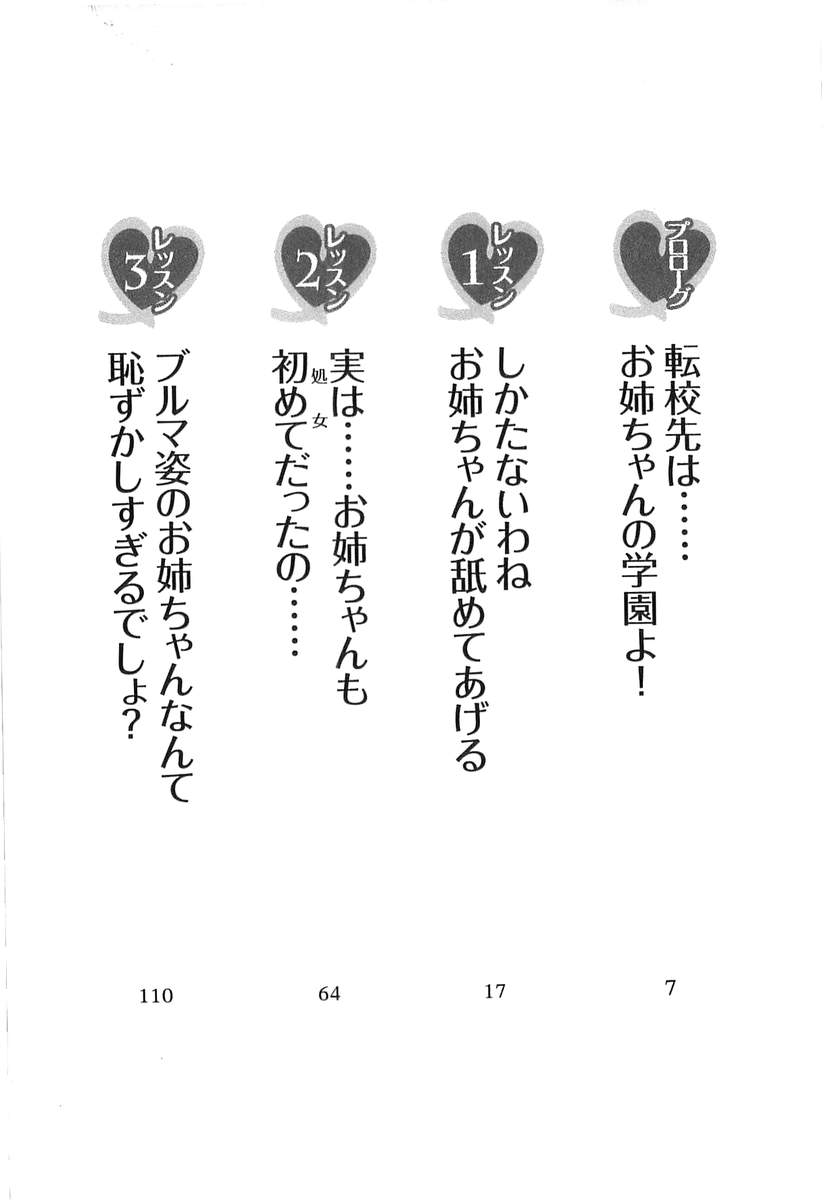 プロローグ
転校先は……
お姉ちゃんの学園よ！
7
レッスン
1
しかたないわね
お姉ちゃんが舐めてあげる
17
レッスン
2
実は……お姉ちゃんも
処女
初めてだったの……
64
レッスン
3
ブルマ姿のお姉ちゃんなんて
恥ずかしすぎるでしょ？
110